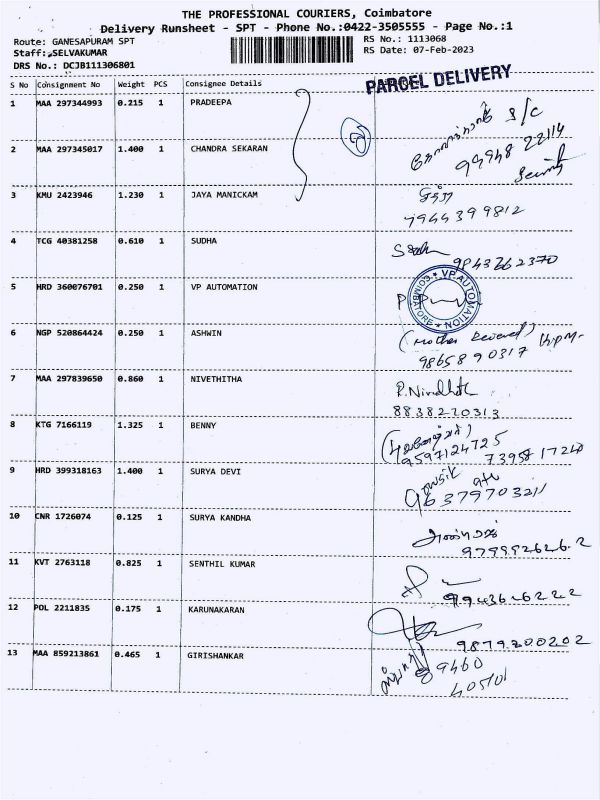 THE PROFESSIONAL COURIERS, Coimbatore
Delivery Runsheet - SPT - Phone No.:0422-3505555 - Page No.:1
Route: GANESAPURAM SPT
RS No.: 1113068
Staff: SELVAKUMAR
RS Date: 07-Feb-2023
DRS No.: DCJB111306801
S No Consignment No Weight PCS Consignee Details
PARCEL DELIVERY
1 MAA 297344993 0.215 1 PRADEEPA
S/C
94948 22114
2 MAA 297345017 1.400 1 CHANDRA SEKARAN
3 KMU 2423946 1.230 1 JAYA MANICKAM
7944399812
4 TCG 40381258 0.610 1 SUDHA
9843762370
5 HRD 360076701 0.250 1 VP AUTOMATION
VP AUTOMATION COIMBATORE
6 NGP 520864424 0.250 1 ASHWIN
(Mother Received)
9865890317
7 MAA 297839650 0.860 1 NIVETHITHA
8838270313
8 KTG 7166119 1.325 1 BENNY
9597124725
73958 17240
9 HRD 399318163 1.400 1 SURYA DEVI
9637970321
10 CNR 1726074 0.125 1 SURYA KANDHA
9799926262
11 KVT 2763118 0.825 1 SENTHIL KUMAR
12 POL 2211835 0.175 1 KARUNAKARAN
9879200202
13 MAA 859213861 0.465 1 GIRISHANKAR
9460
405101